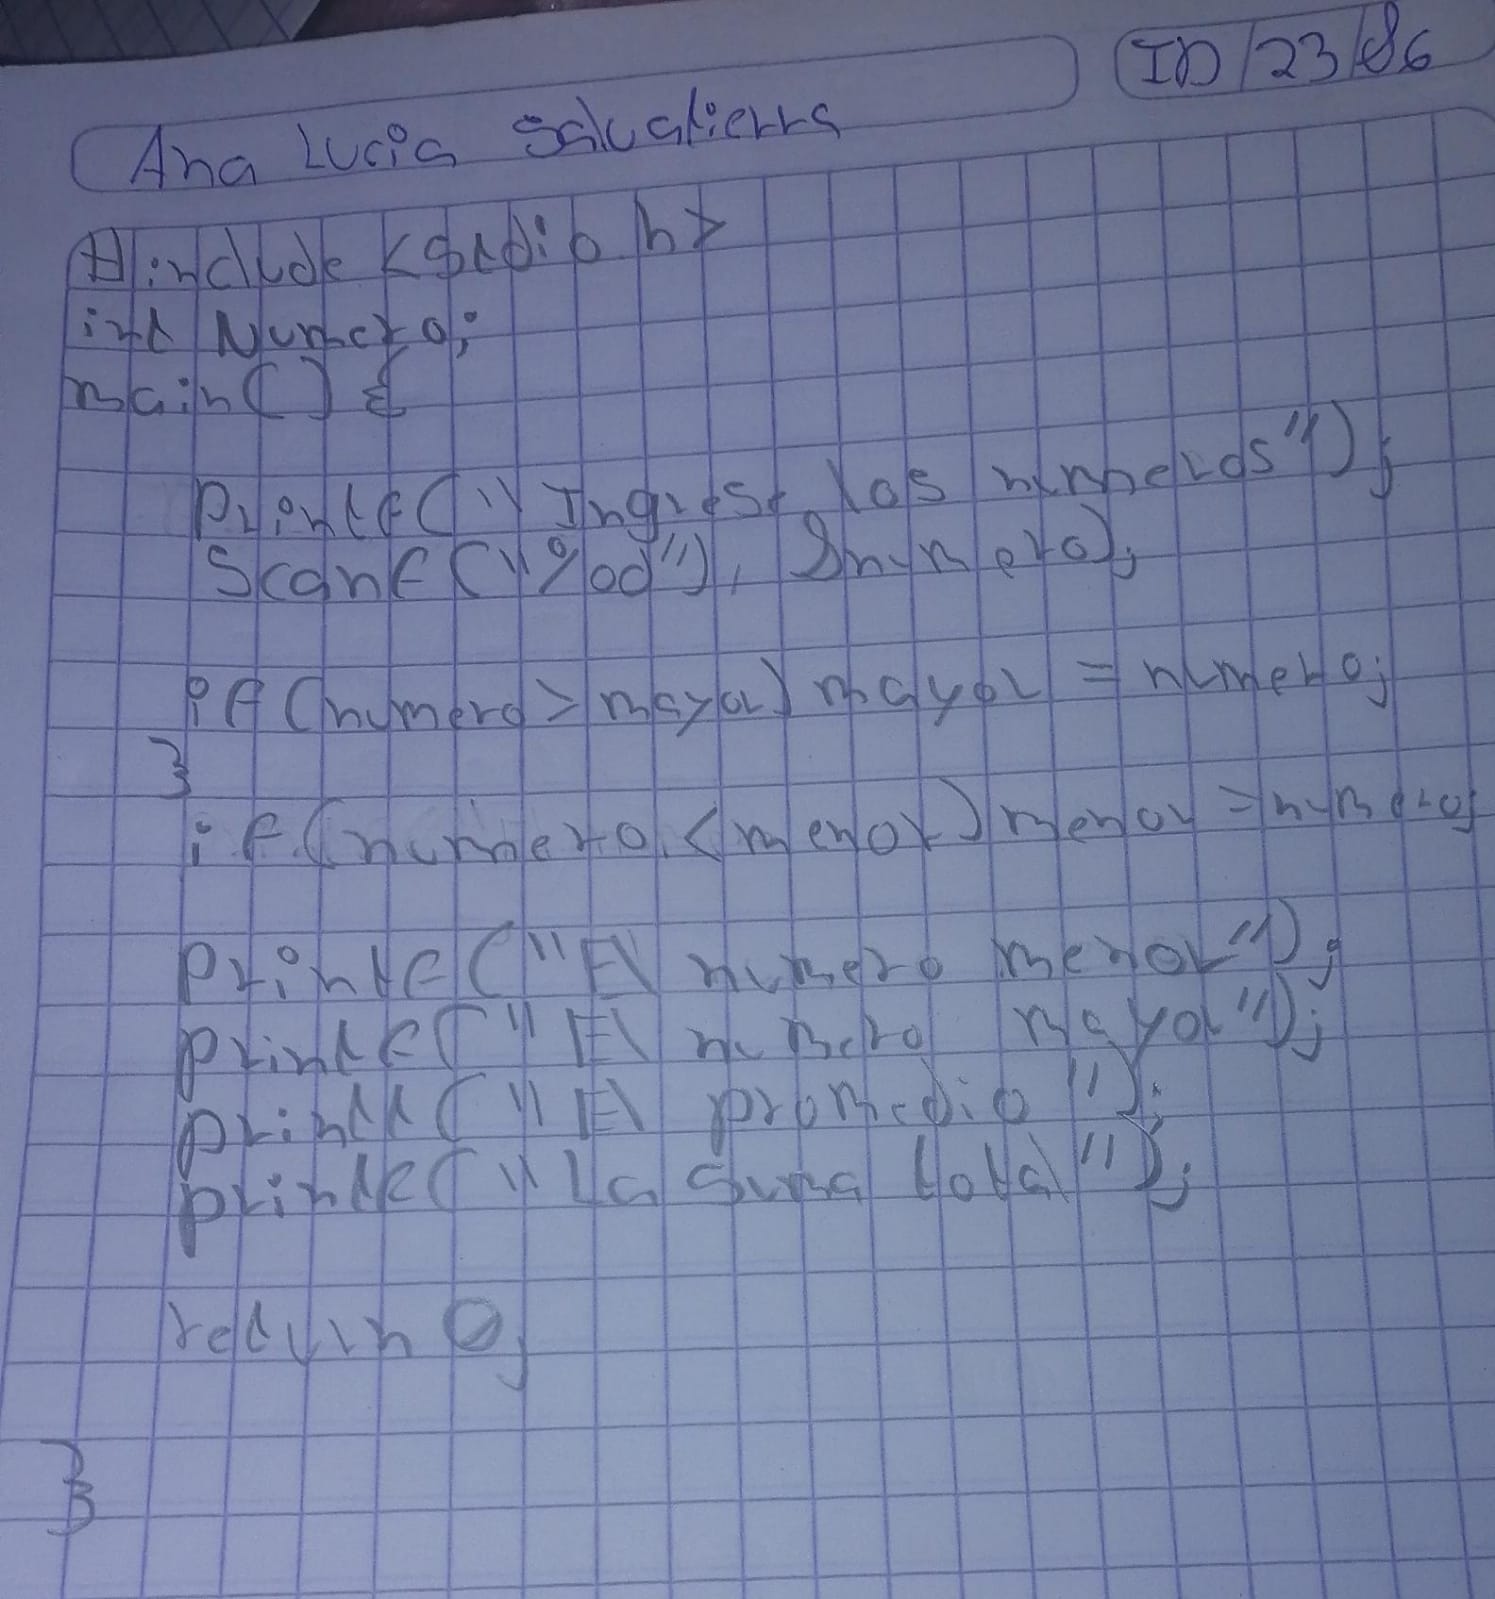 ID/23/86
Ana Lucia Salvatierra
#include <stdio h>
int Numero;
main() {
printf("Ingrese los numeros");
Scanf("%d"), &numero);
if (numero > mayor) mayor = numero;
}
if (numero < menor) menor = numero;
printf("El numero menor");
printf("El numero mayor");
printf("El promedio");
printf("La suma total");
return 0;
}